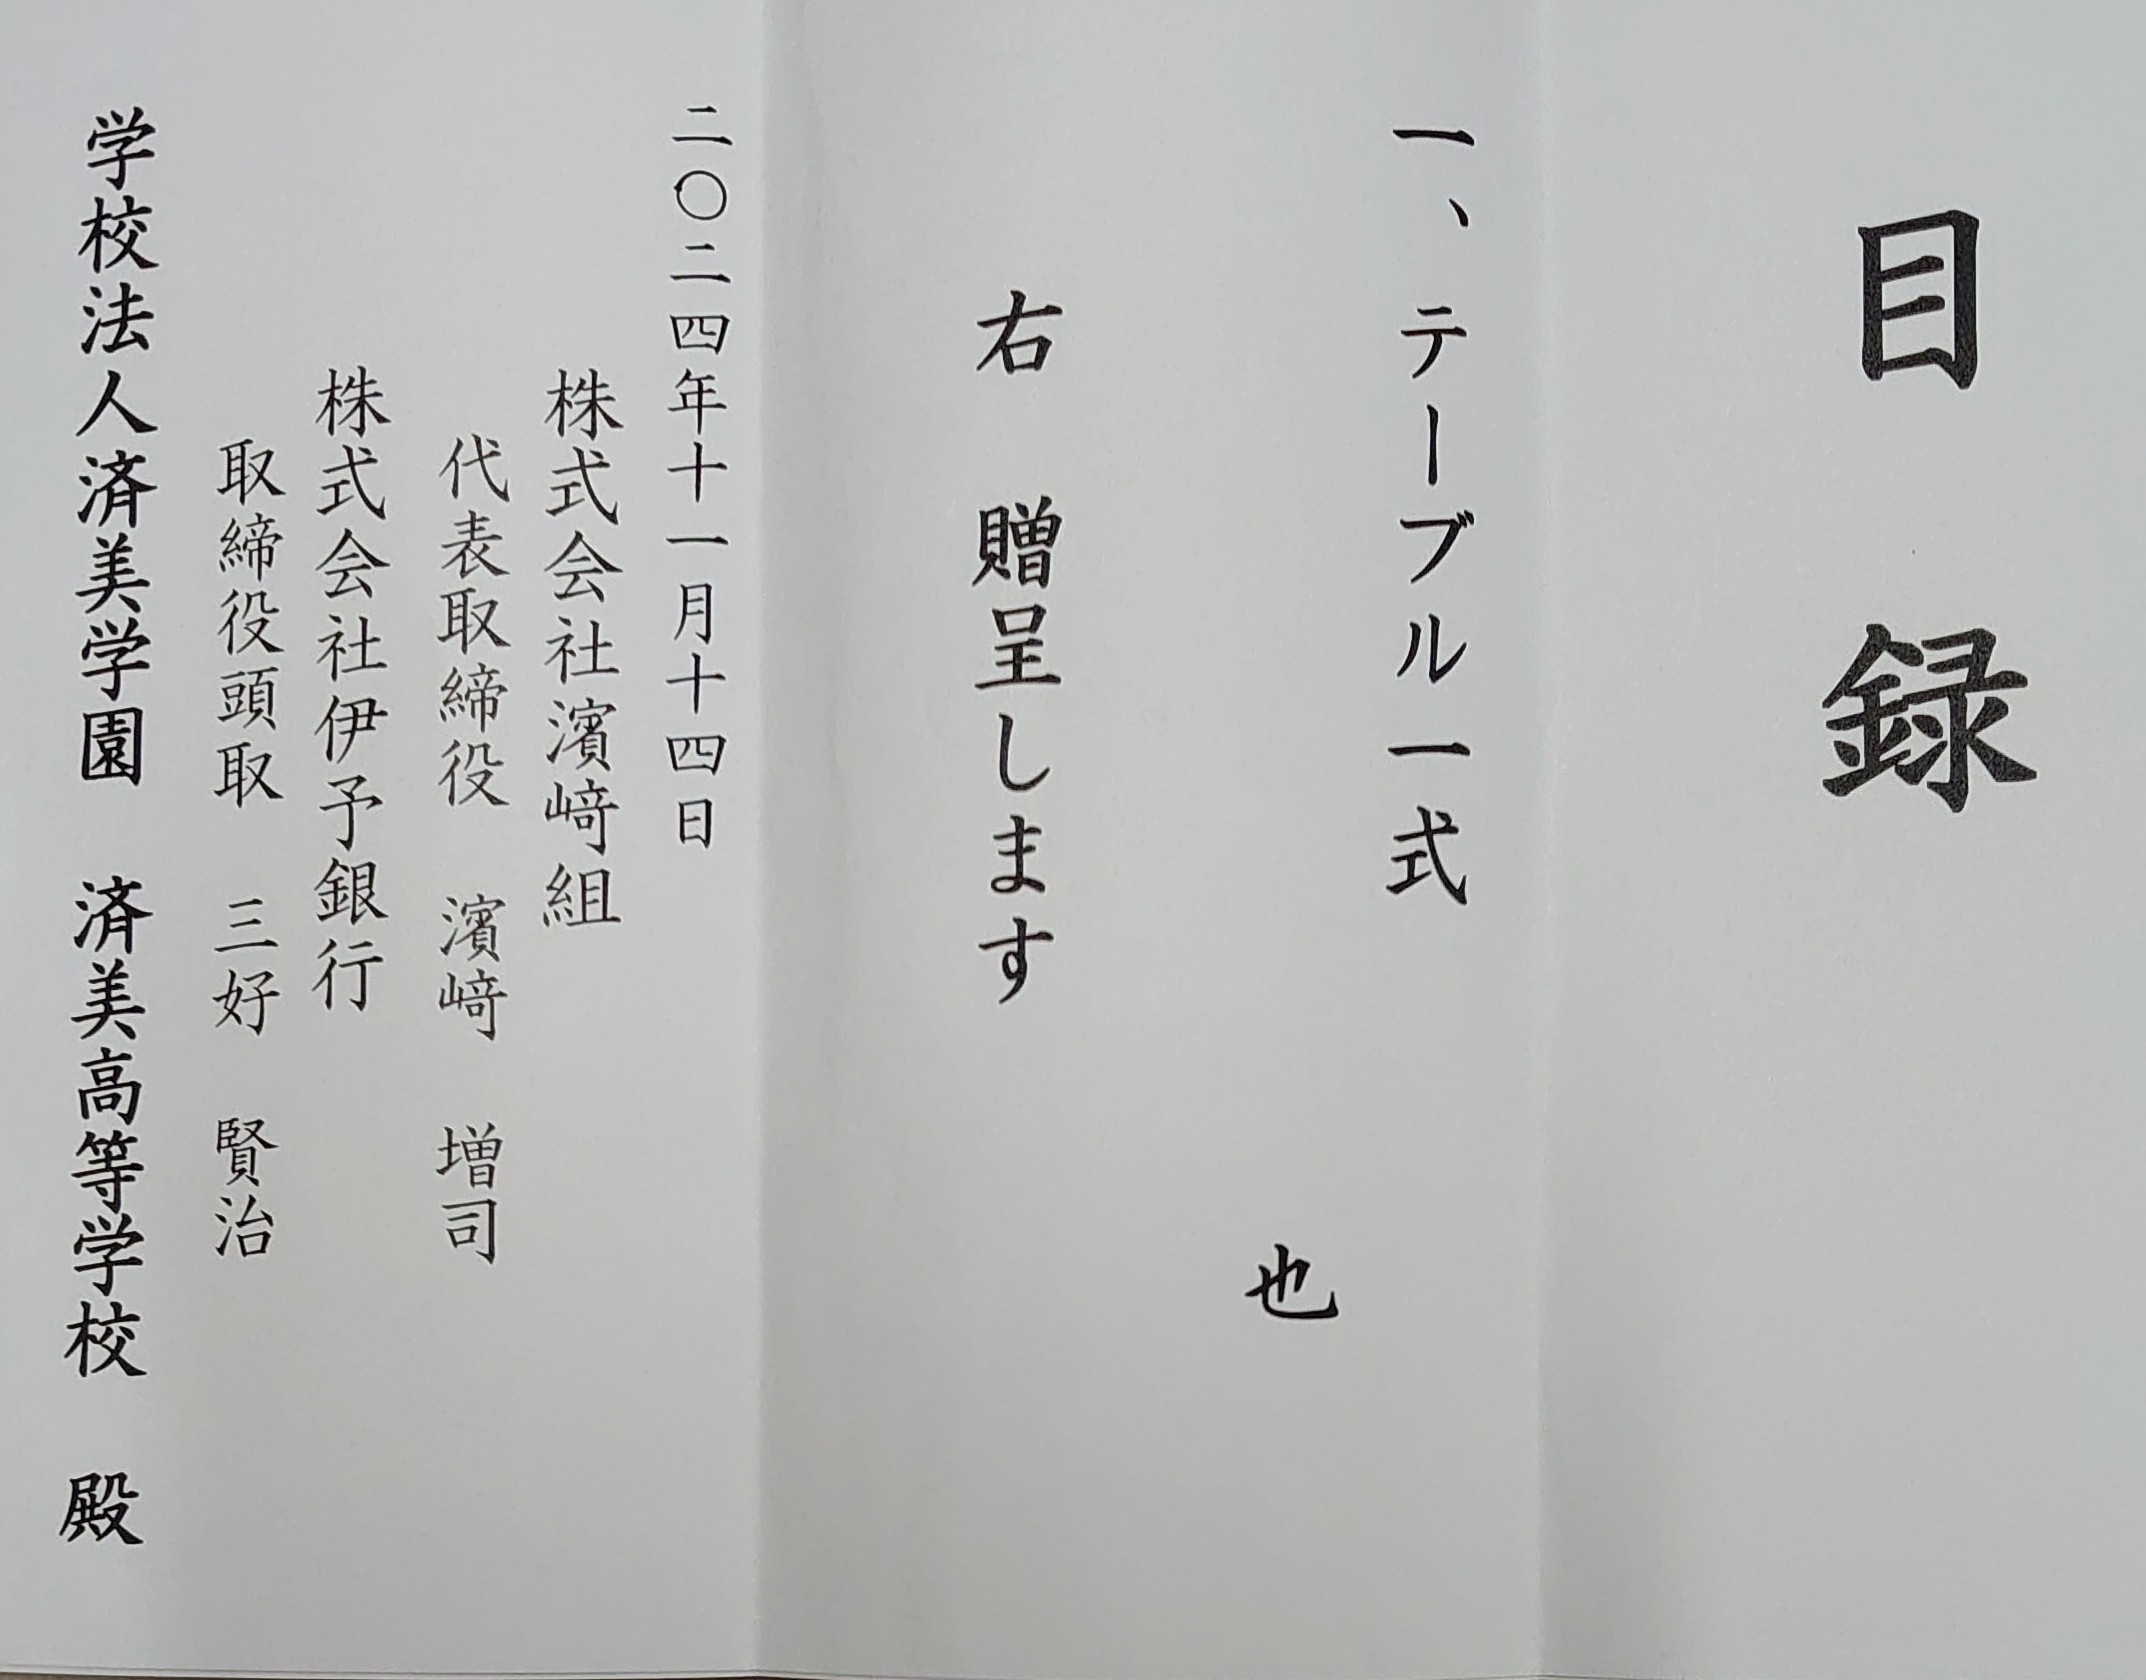 目録
一、テーブル一式
也
右 贈呈します
二〇二四年十一月十四日
株式会社濱﨑組
代表取締役 濱﨑 増司
株式会社伊予銀行
取締役頭取 三好 賢治
学校法人済美学園 済美高等学校 殿